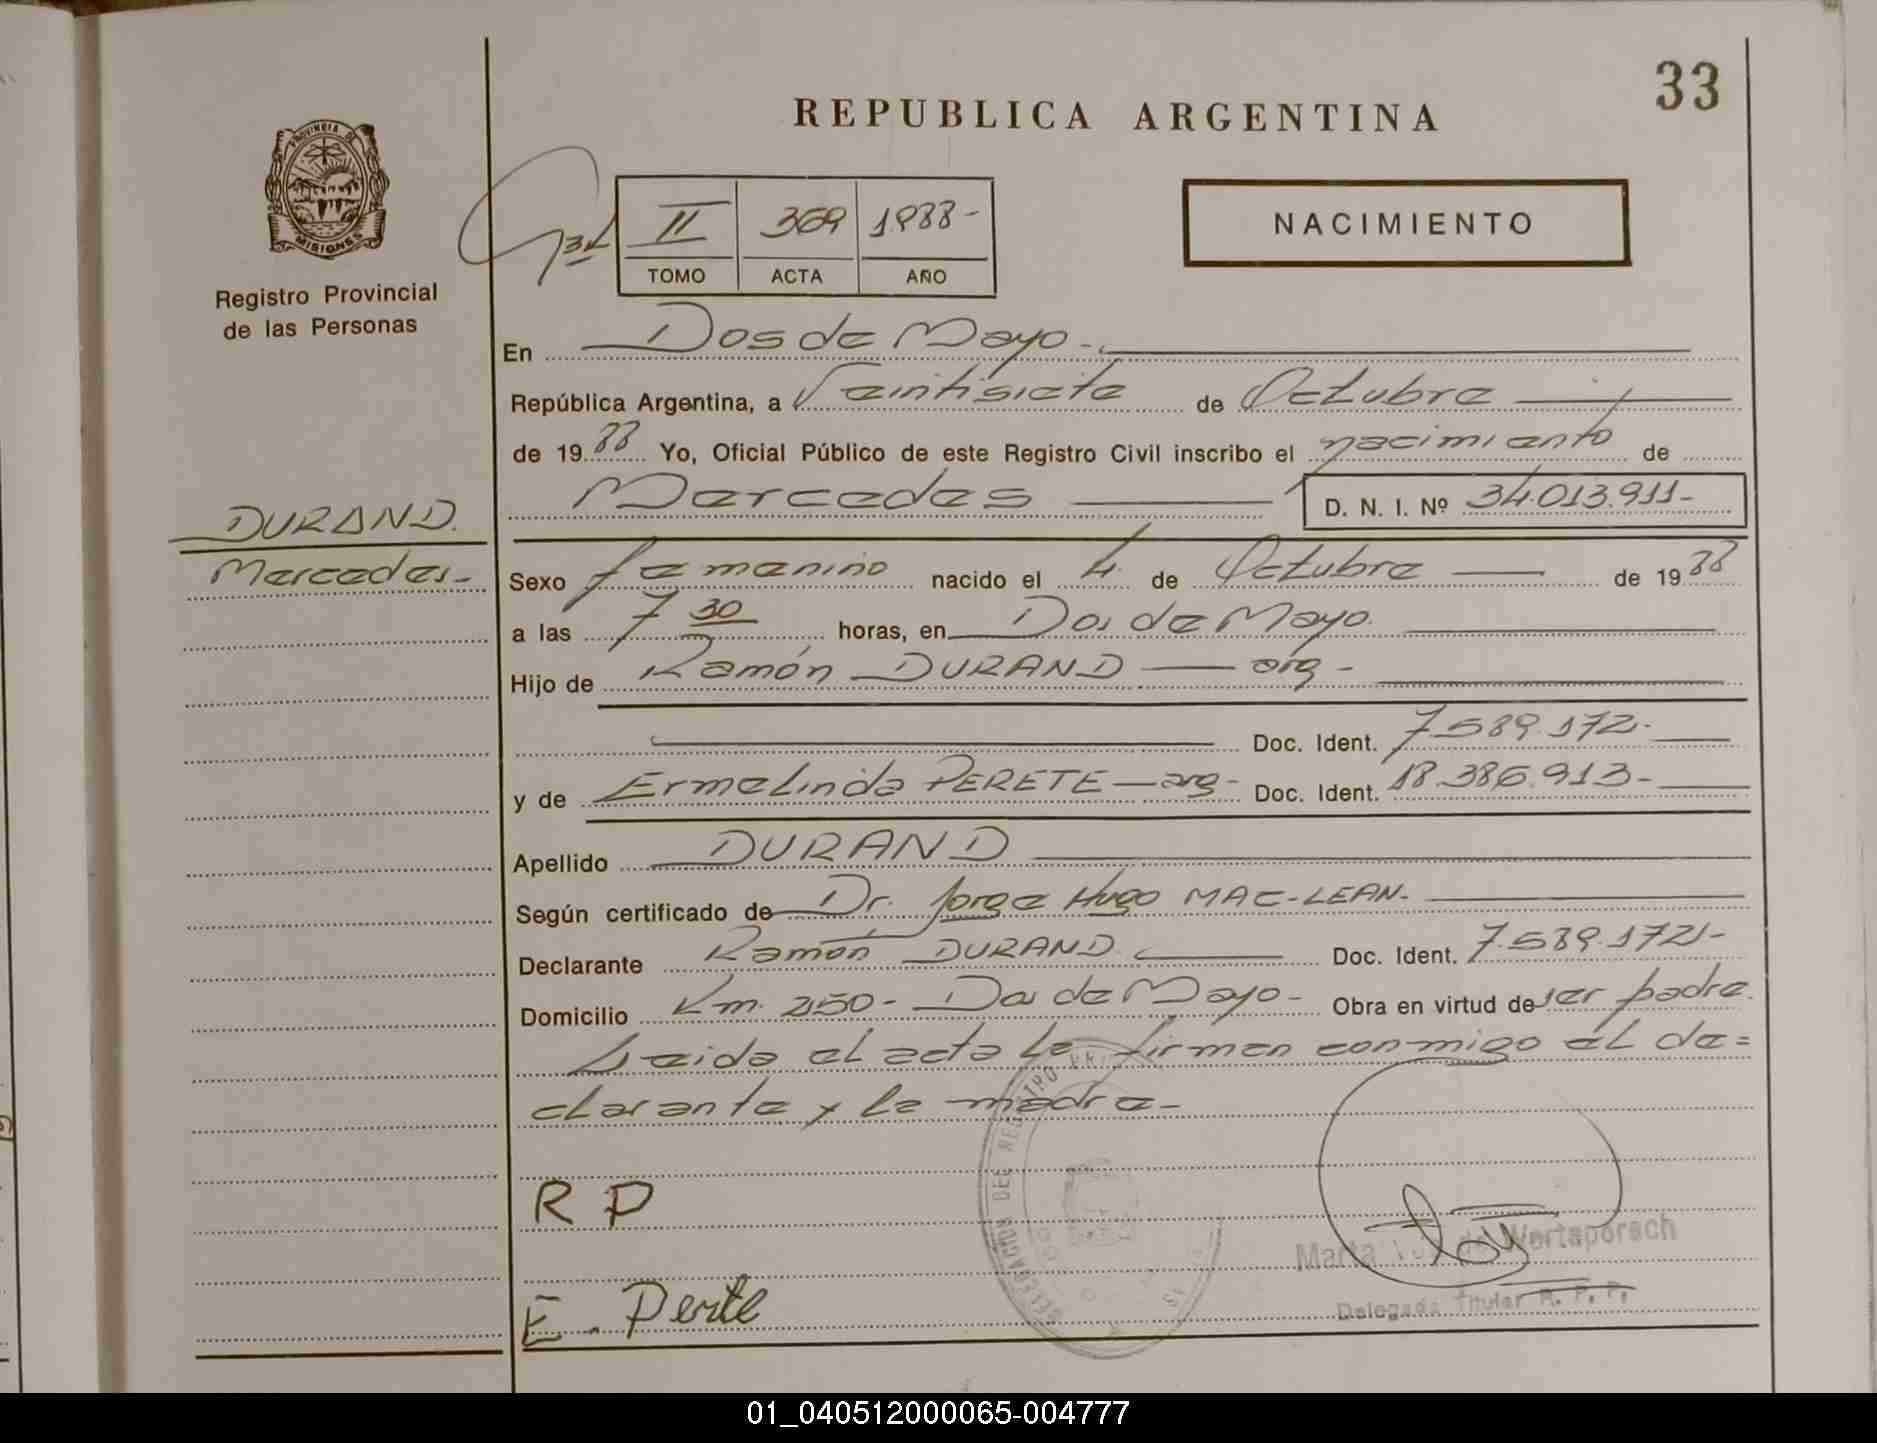 33
REPUBLICA ARGENTINA
PROVINCIA DE
MISIONES
Registro Provincial
de las Personas
II 369 1.988-
TOMO ACTA AÑO
NACIMIENTO
En Dos de Mayo.-
República Argentina, a Veintisiete de Octubre
de 19 88 Yo, Oficial Público de este Registro Civil inscribo el nacimiento de
Mercedes D. N. I. Nº 34.013.911-
DURAND.
Mercedes.-
Sexo femenino nacido el 4. de Octubre de 19 88
a las 7 30 horas, en Dos de Mayo.
Hijo de Ramón DURAND arg-
Doc. Ident. 7.589.172-
y de Ermelinda PERETE - arg- Doc. Ident. 18.386.913-
Apellido DURAND
Según certificado de Dr. Jorge Hugo MAC-LEAN.
Declarante Ramón DURAND. Doc. Ident. 7.589.172-
Domicilio Km. 250- Dos de Mayo- Obra en virtud de ser padre.
Leida el acta la firman conmigo el de=
clarante y la madre-
R P
E. Perte
Marta de Wertaporach
Delegada Titular R. P. P.
01_040512000065-004777